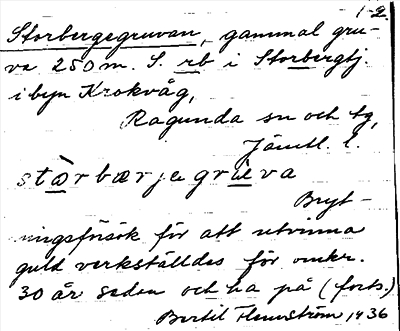 1-2.
Storbergsgruvan, gammal gru-
va 250 m. S. rb i Storbergtj.
i byn Krokvåg,
Ragunda sn och tg,
Jämtl. l.
stàrbærjegrùva
Bryt-
ningsförsök för att utvinna
guld verkställdes för omkr.
30 år sedan och ha på (forts.)
Bertil Flemström 1936